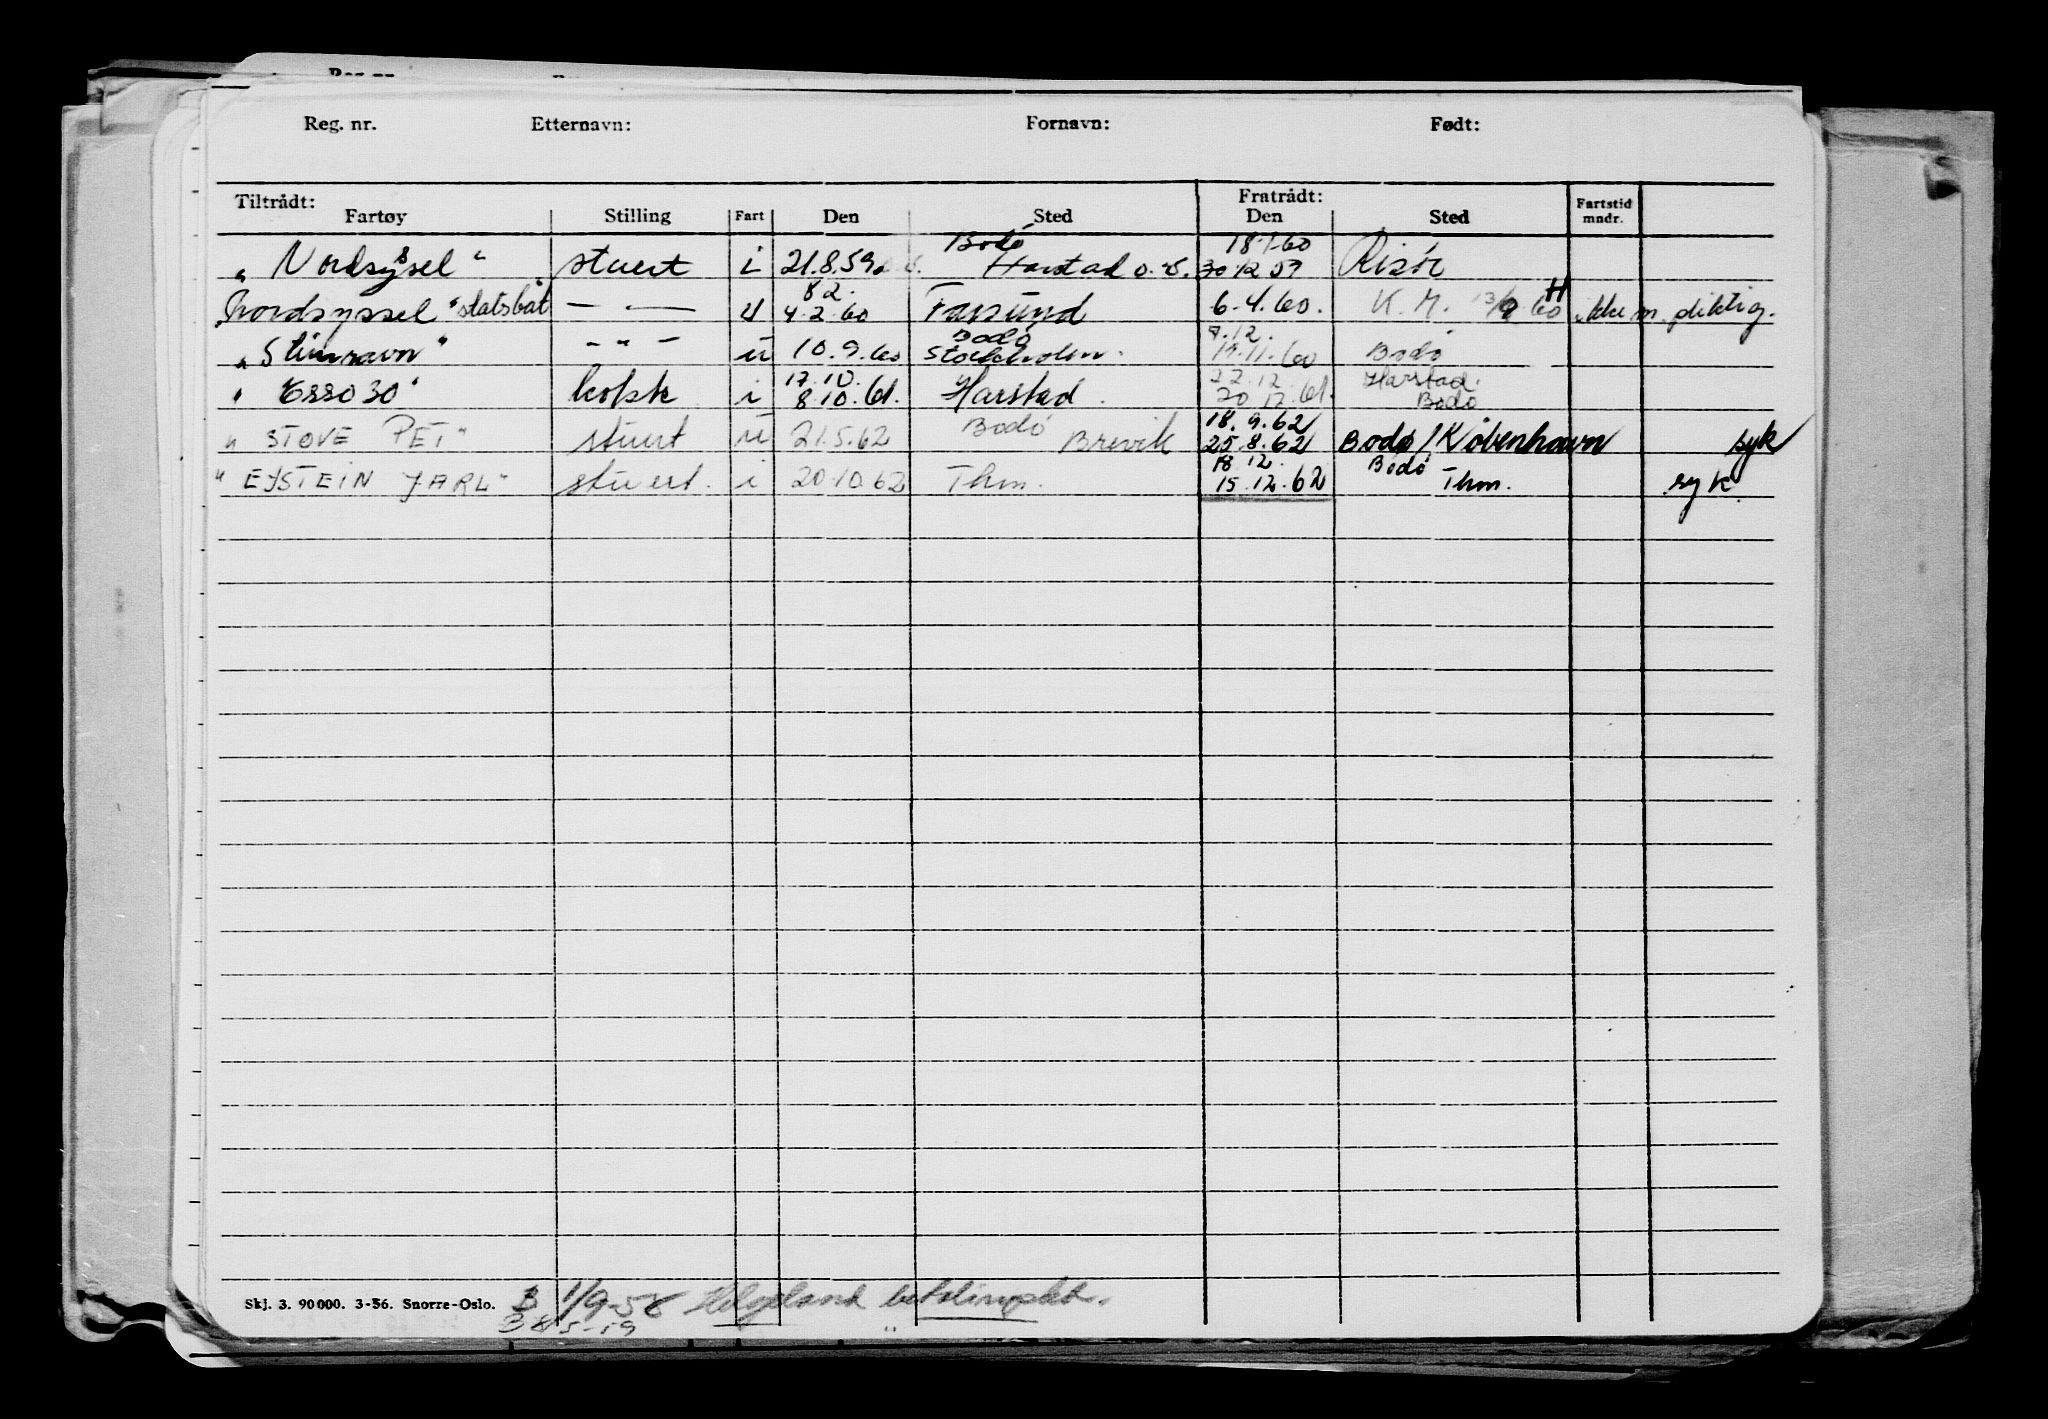 Reg. nr. Etternavn: Fornavn: Født:
Tiltrådt: Fratrådt:
Fartøy Stilling Fart Den Sted Den Sted Fartstid mndr.
Bodø 18.1.60
„ Nordsyssel “ stuert i 21.8.59 Harstad o.S. 30.12.59 Risør
8 2.
„Nordsyssel “ statsbåt — — u 4.2.60 Farsund 6.4.60. K. M. 13/9 60 H ikke m. pliktig.
Bodø 7.12.
„ Stinravn “ - „ - u 10.9.60 Stockholm. 14.11.60 Bodø
17.10. 22.12. Harstad.
„ Esso 30 “ kokk i 8.10.61. Harstad. 20.12.61. Bodø
Bodø 18.9.62
„ STOVE PET“ stuert u 21.5.62 Brevik 25.8.62 Bodø/København syk
18.12. Bodø
“ EYSTEIN JARL“ stuert. i 20.10.62 Thm. 15.12.62 Thm. syk.
Skj. 3. 90000. 3-56. Snorre-Oslo. B 1/9-58 Helgeland